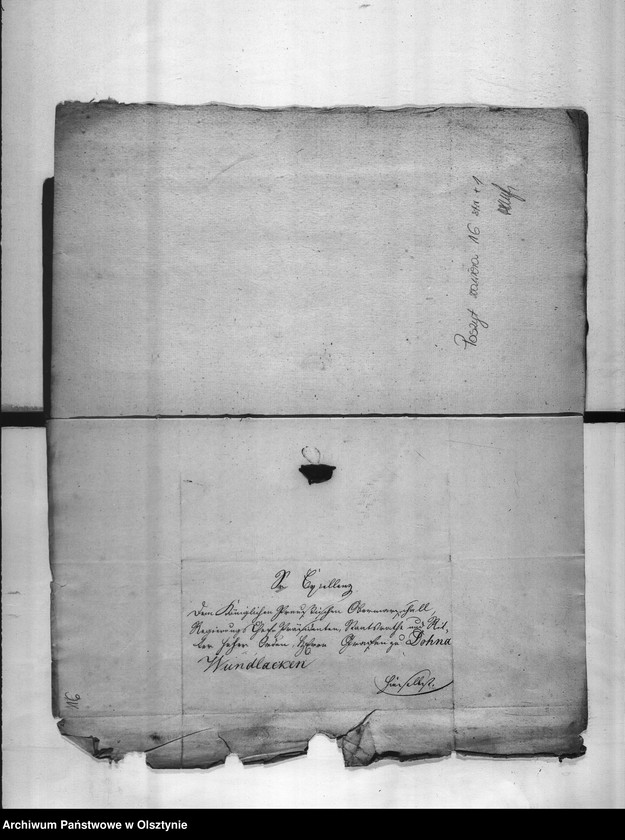 Poszyt zawiera 16 str + 1
Sr Excellenz
dem Königlichen Preußischen Obermarschall,
Regierungs Chef-Präsidenten, Staatsrathe und Rit-
ter hoher Orden, Herrn Grafen zu Dohna
Wundlacken
hierselbst.
116
Archiwum Państwowe w Olsztynie